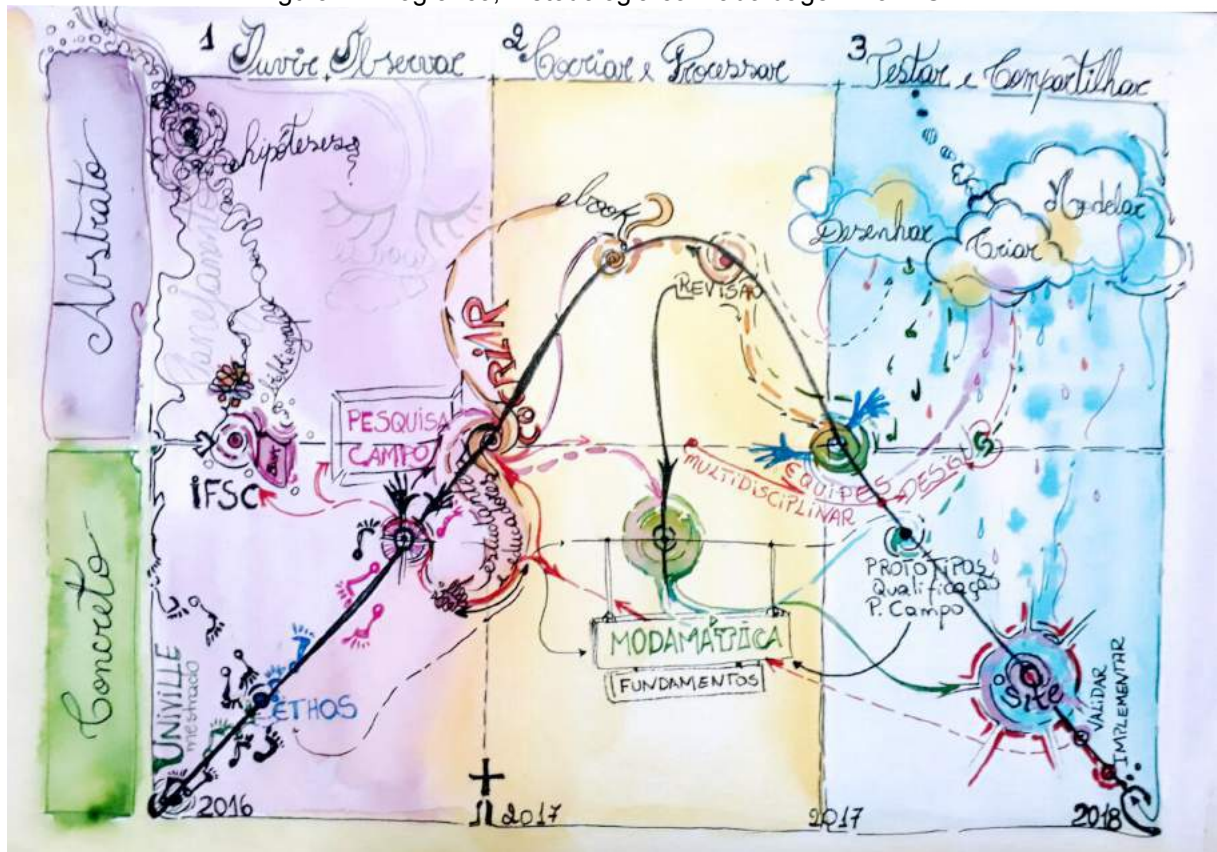 1 Ouvir, Observar
2 Cocriar e Processar
3 Testar e Compartilhar
Abstrato
Concreto
hipóteses?
Planejamento
bibliografia
ebook?
REVISÃO
Desenhar
Criar
Modelar
COCRIAR
PESQUISA
CAMPO
IFSC
estudantes
e educadores
MULTIDISCIPLINAR
EQUIPES
DESIGN
PROTÓTIPOS
Qualificação
P. Campo
MODAMÁTICA
FUNDAMENTOS
ETHOS
UNIVILLE
mestrado
Site
VALIDAR
IMPLEMENTAR
2016
2017
2017
2018